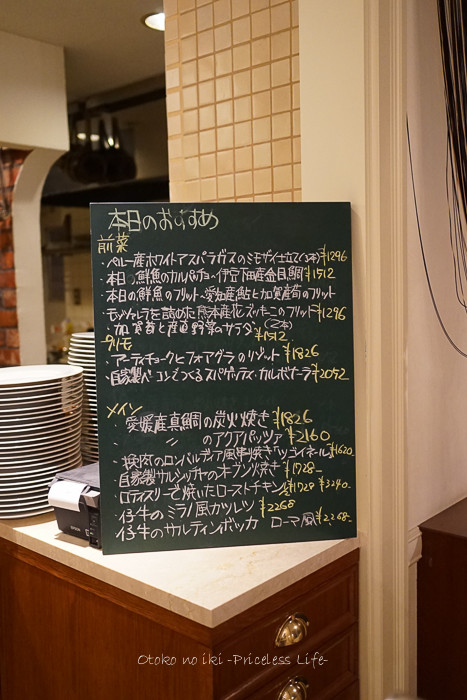 本日のおすすめ
前菜
・ペルー産ホワイトアスパラガスのミモザ仕立て(2本)¥1296
・本日の鮮魚のカルパッチョ〜伊豆下田産金目鯛¥1512
・本日の鮮魚のフリット〜愛知産鮎と加賀産筍のフリット
・モッツァレラを詰めた熊本産花ズッキーニのフリット¥1296
(2本)
・加賀筍と産直野菜のサラダ ¥1512
プリモ
・アーティチョークとフォアグラのリゾット ¥1826
・自家製ベーコンでつくるスパゲッティ・カルボナーラ¥2052
メイン
・愛媛産真鯛の炭火焼き¥1826
・〃 のアクアパッツァ ¥2160
・挽肉のロンバルディア風串焼き「ツゴイネール」¥1620
・自家製サルシッチャのオーブン焼き ¥1728-
・ロティスリーで焼いたローストチキン½¥1728 ¥3240-
・仔牛のミラノ風カツレツ ¥2268
・仔牛のサルティンボッカ ローマ風¥2268-
EPSON
Otoko no iki -Priceless Life-